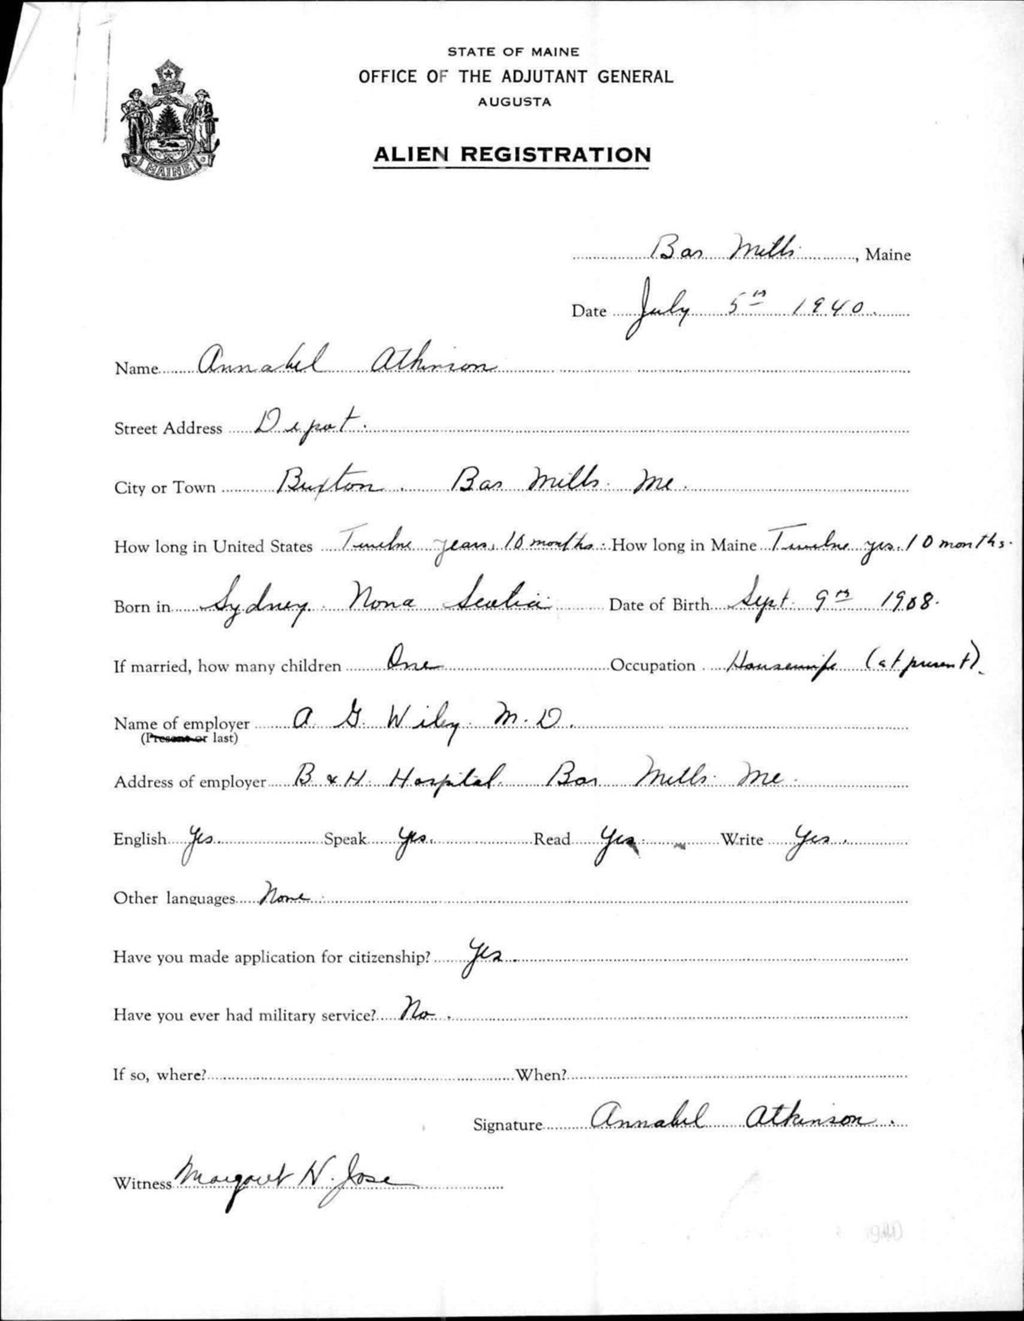 STATE OF MAINE
OFFICE OF THE ADJUTANT GENERAL
AUGUSTA
ALIEN REGISTRATION
MAINE
Bar Mills, Maine
Date July 5th 1940.
Name Annabel Atkinson
Street Address Depot.
City or Town Buxton. Bar Mills. Me.
How long in United States Twelve years, 10 months. How long in Maine Twelve yrs. 10 months.
Born in Sydney Nova Scotia Date of Birth Sept. 9th 1908.
If married, how many children One Occupation Housewife (at present).
Name of employer A G. Wiley. M.D.
(Present or last)
Address of employer B & H. Hospital. Bar Mills. Me.
English Yes. Speak Yes. Read Yes. Write Yes.
Other languages None.
Have you made application for citizenship? Yes.
Have you ever had military service? No.
If so, where? When?
Signature Annabel Atkinson.
Witness Margaret N. Jose